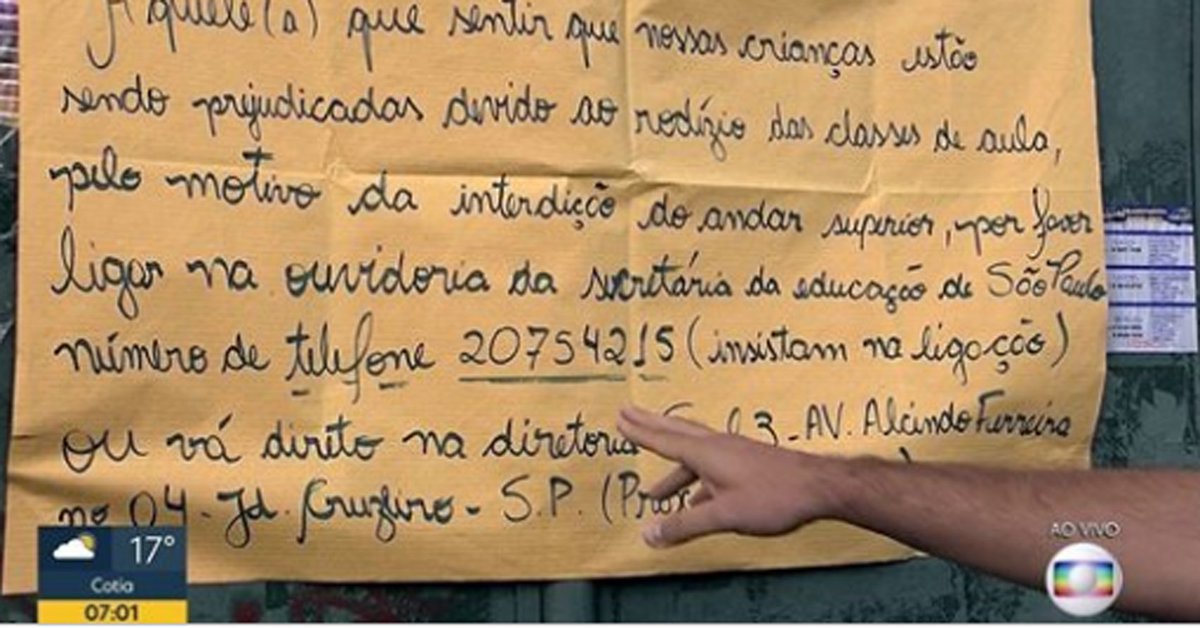 Aquele(a) que sentir que nossas crianças estão
sendo prejudicadas devido ao rodízio das classes de aula,
pelo motivo da interdição do andar superior, por favor
ligar na ouvidoria da secretária da educação de São Paulo
número de telefone 20754215 (insistam na ligação)
ou vá direto na diretoria 3 - AV. Alcindo Ferreira
no 04 - Jd. Cruzeiro - S.P.
17°
Cotia
07:01
AO VIVO